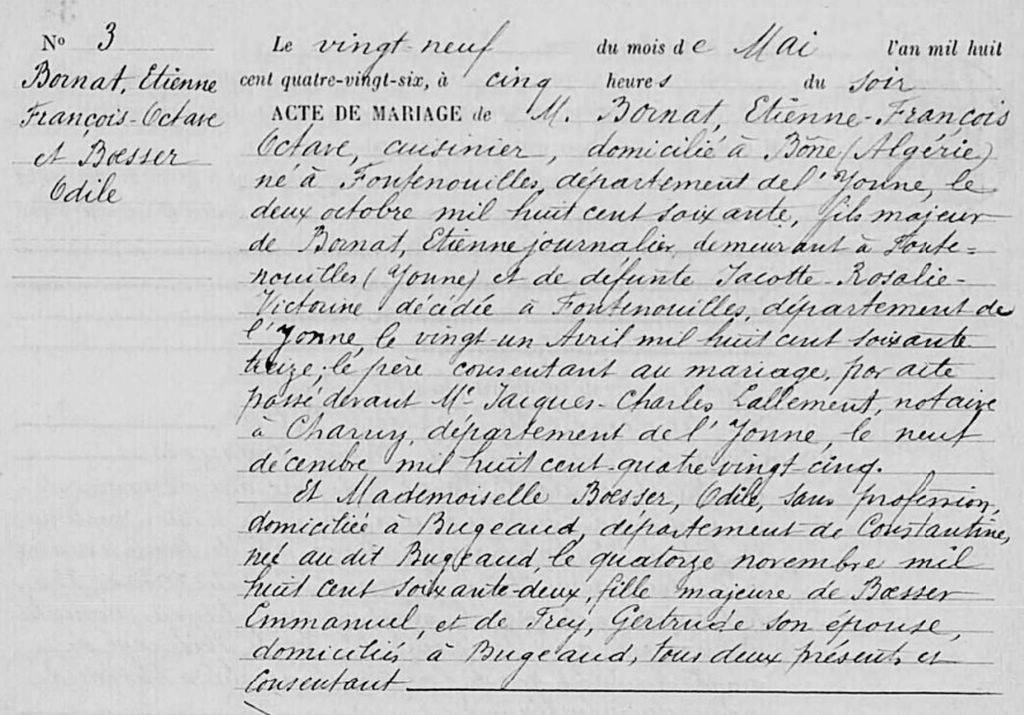 N° 3
Bornat, Etienne
François-Octave
et Bœsser
Odile
Le vingt-neuf du mois de Mai l'an mil huit
cent quatre-vingt-six, à cinq heures du soir
ACTE DE MARIAGE de M. Bornat, Etienne-François
Octave, cuisinier, domicilié à Bône (Algérie)
né à Fontenouilles, département de l'Yonne, le
deux octobre mil huit cent soixante, fils majeur
de Bornat, Etienne journalier, demeurant à Fonte=
nouilles (Yonne) et de défunte Jacotte-Rosalie-
Victorine décédée à Fontenouilles, département de
l'Yonne, le vingt un Avril mil huit cent soixante
treize; le père consentant au mariage, par acte
passé devant Me Jacques-Charles Lallement, notaire
à Charny, département de l'Yonne, le neuf
décembre mil huit cent-quatre vingt cinq.
Et Mademoiselle Bœsser, Odile, sans profession,
domiciliée à Bugeaud, département de Constantine,
née audit Bugeaud, le quatorze novembre mil
huit cent soixante-deux, fille majeure de Bœsser
Emmanuel, et de Frey, Gertrude son épouse,
domiciliés à Bugeaud, tous deux présents et
Consentant